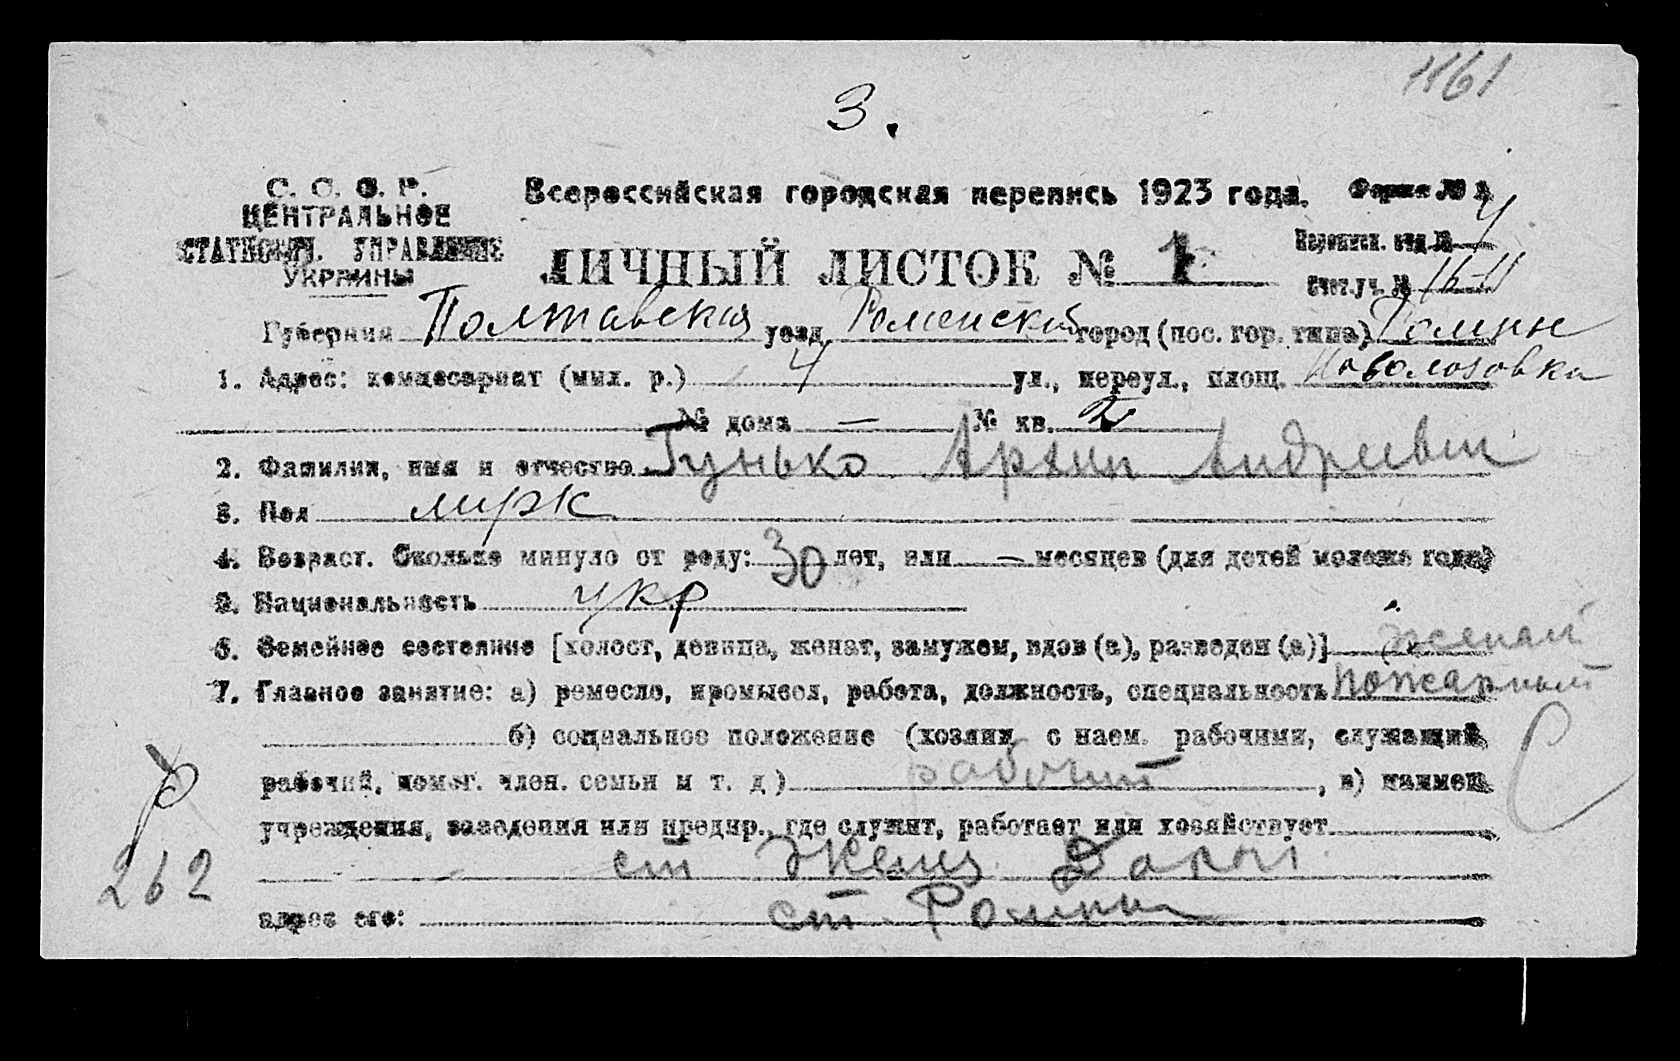 1161
3.
С. С. С. Р.
ЦЕНТРАЛЬНОЕ
СТАТИСТИЧ. УПРАВЛЕНИЕ
УКРАИНЫ
Всероссийская городская перепись 1923 года.
Форма № 1
ЛИЧНЫЙ ЛИСТОК № 1
Переписн. отд. № 4
Счет. уч. №
Губерния Полтавская уезд Роменский город (пос. гор. типа) Ромны
1. Адрес: комиссариат (мил. р.) 4 ул., переул., площ.
№ дома — № кв.
2. Фамилия, имя и отчество Гунько Архип Андреевич
3. Пол мужск
4. Возраст. Сколько минуло от роду: 30 лет, или — месяцев (для детей моложе года)
5. Национальность укр
6. Семейное состояние [холост, девица, женат, замужем, вдов (а), разведен (а)] женат
7. Главное занятие: а) ремесло, промысел, работа, должность, специальность пожарный
б) социальное положение (хозяин с наем. рабочими, служащий,
рабочий, помог. член. семьи и т. д) рабочий, в) наимен.
учреждения, заведения или предпр., где служит, работает или хозяйствует
ст Желез. Дороги
адрес его: ст. Ромны
262
С